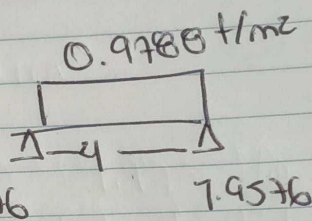 0.9788 t/m2
4
6 1.9576